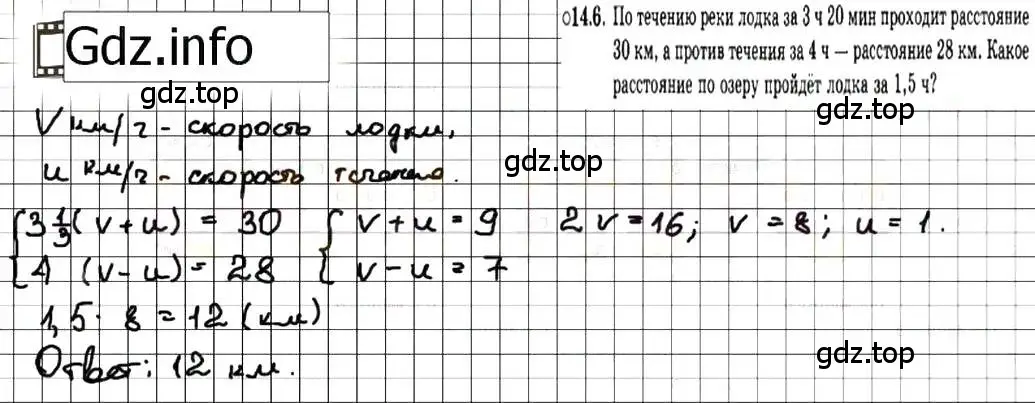 Gdz.info
14.6. По течению реки лодка за 3 ч 20 мин проходит расстояние
30 км, а против течения за 4 ч — расстояние 28 км. Какое
расстояние по озеру пройдёт лодка за 1,5 ч?
gdz.top
V км/ч - скорость лодки,
gdz.top
u км/ч - скорость течения.
{ 3 1/3 (v + u) = 30 { v + u = 9 2v = 16; v = 8; u = 1.
4 (v - u) = 28 v - u = 7
1,5 · 8 = 12 (км)
gdz.top
Ответ: 12 км.
gdz.top